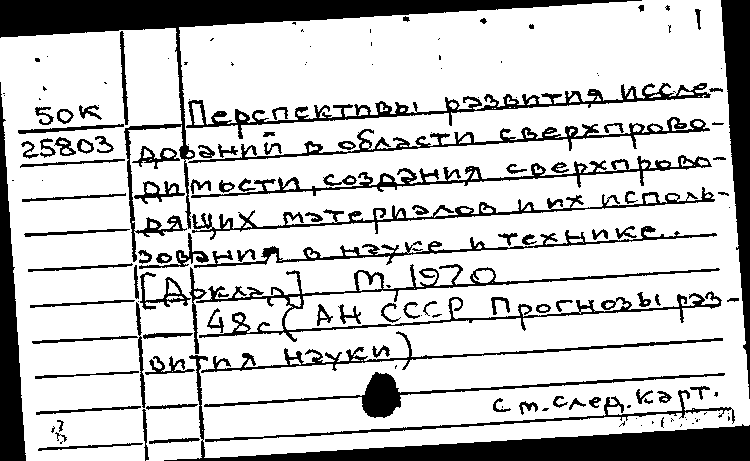 50К Перспективы развития иссле-
25803 дований в области сверхпрово-
димости, создания сверхпрово-
дящих материалов и их исполь-
зования в науке и технике..
[Доклад] М., 1970
48с (АН СССР. Прогнозы раз-
вития науки)
См. след. карт.